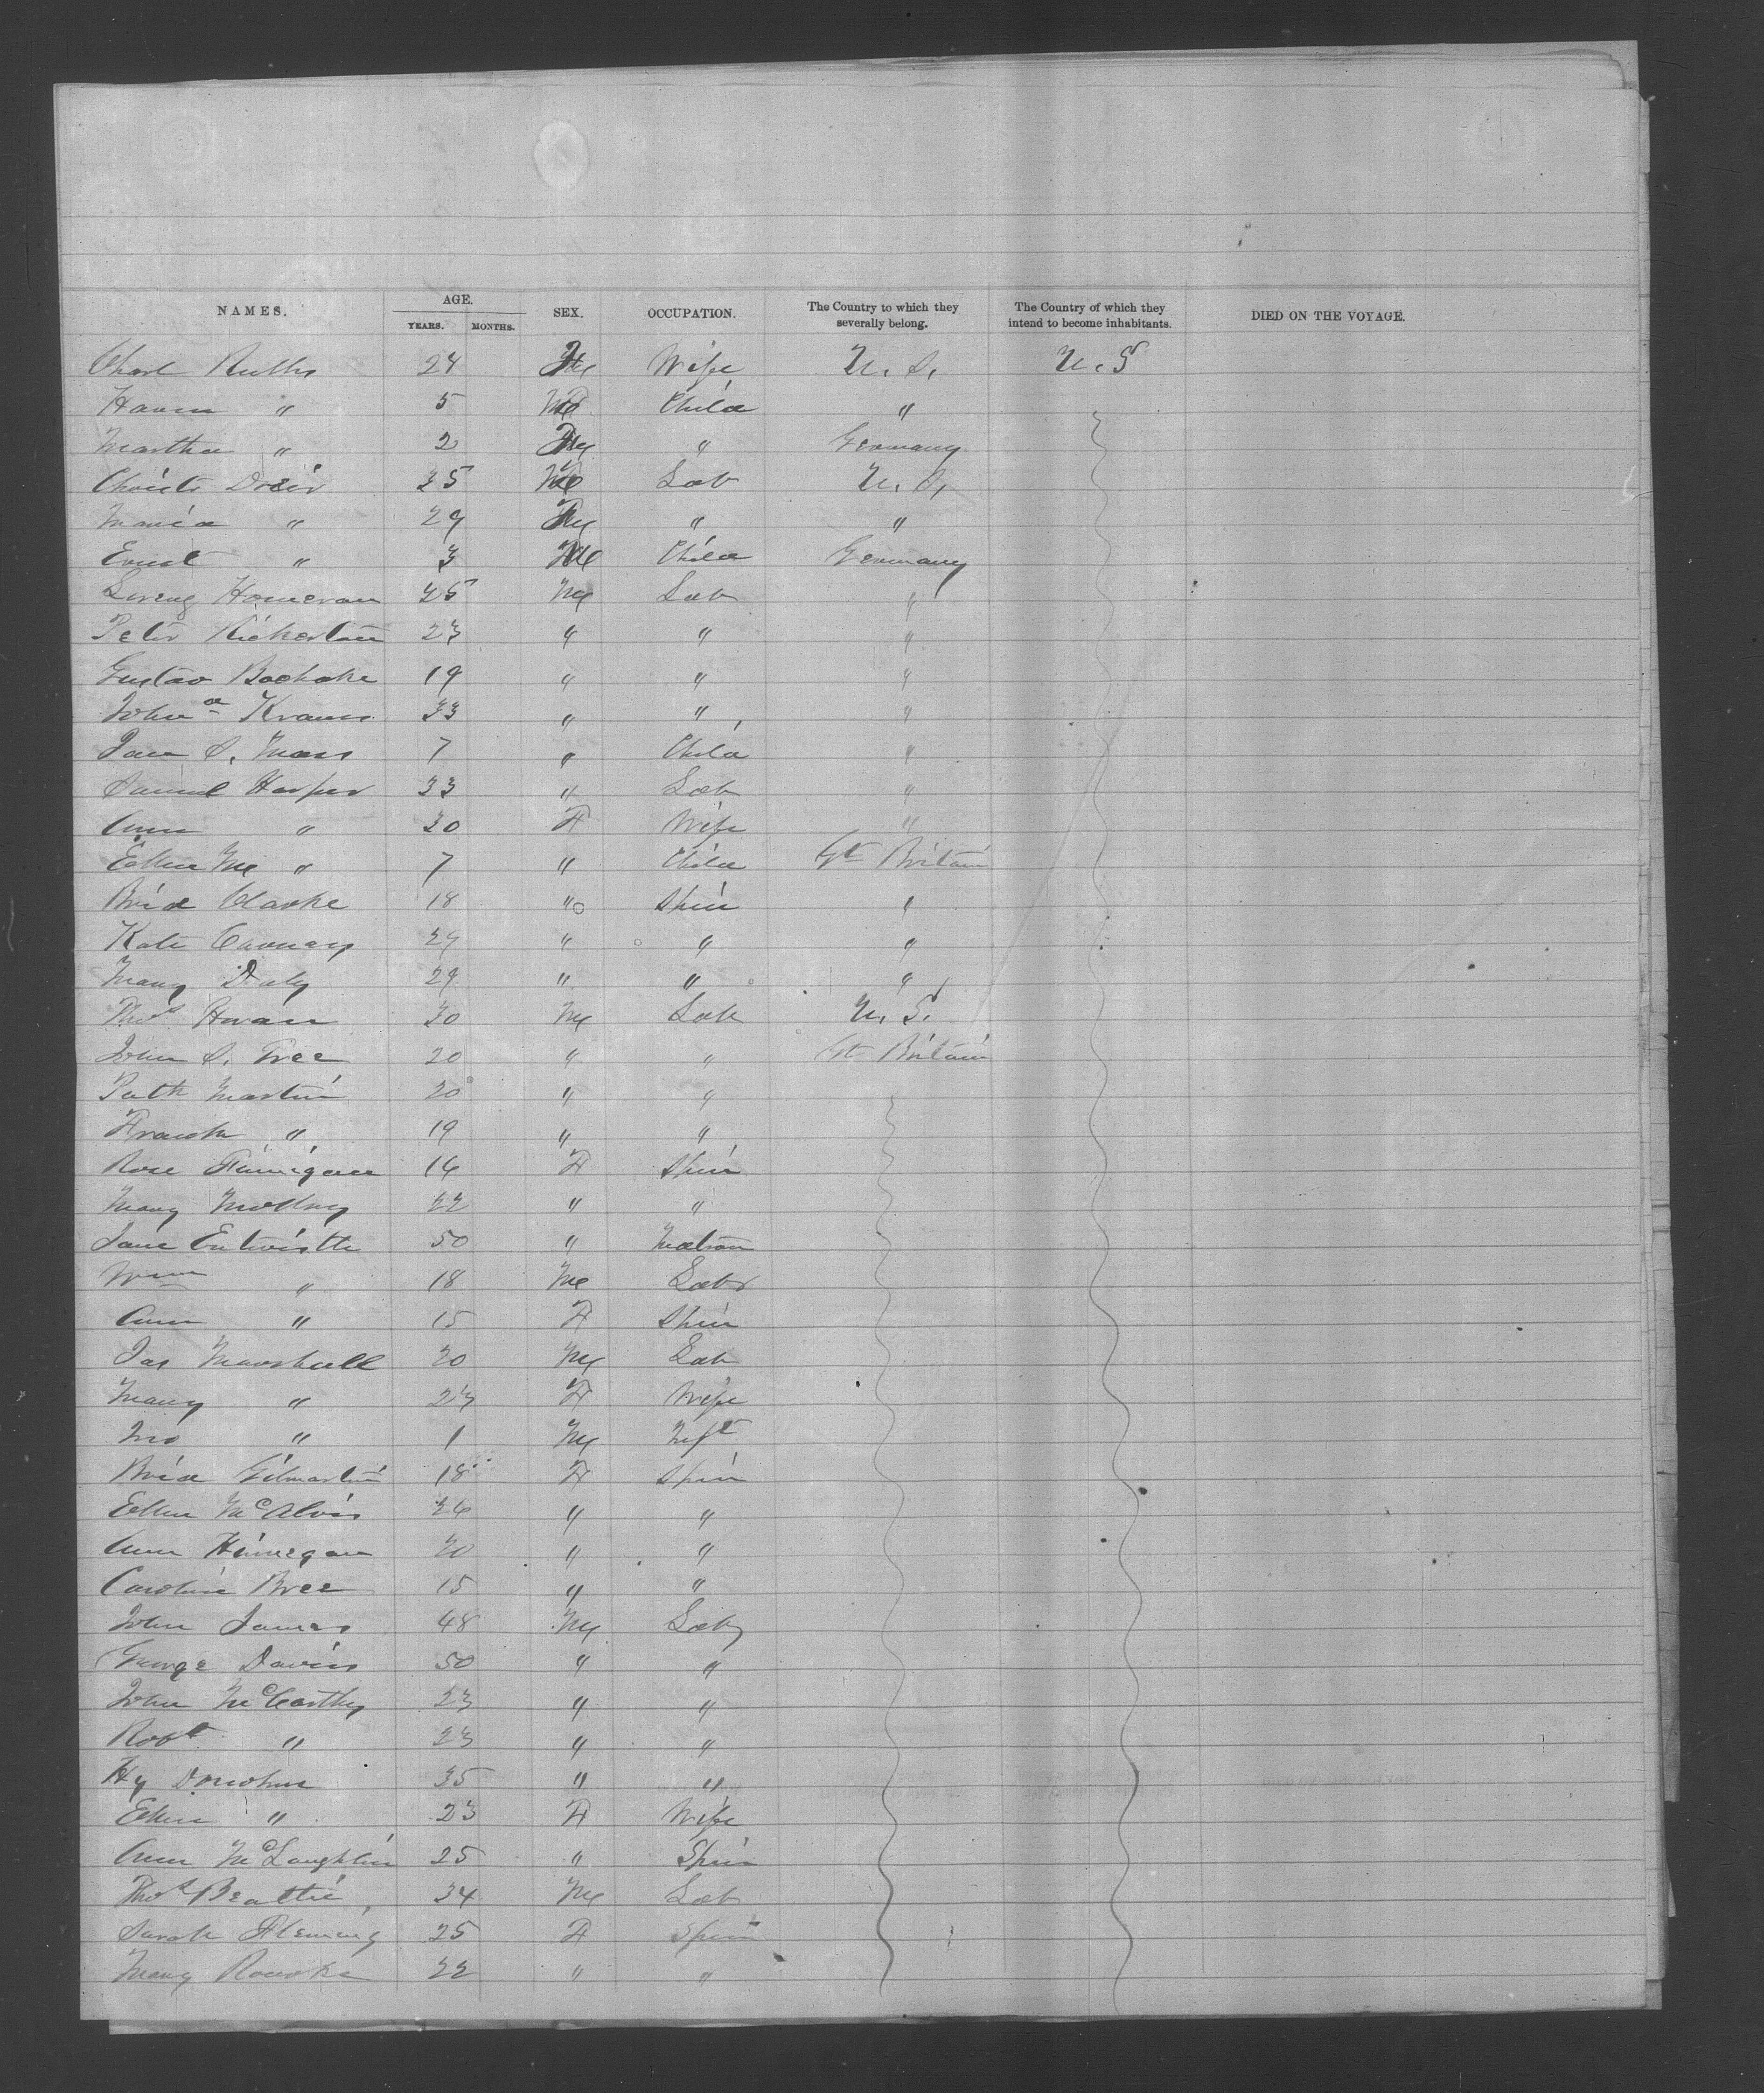 NAMES. AGE. YEARS. MONTHS. SEX. OCCUPATION. The Country to which they severally belong. The Country of which they intend to become inhabitants. DIED ON THE VOYAGE.
Charl 24 Wife U. S. U. S
" 5 Child "
Martha " 2 " Germany
35 Lab U. S.
Maria " 29 " "
Ernst " 3 Child Germany
25 M Lab "
Peter 23 " " "
Gustav 19 " " "
Kraus 33 " " "
7 " Child "
Samuel Harper 33 " Lab "
Ann " 30 F Wife "
Ellen M " 7 " Child Gt Britain
Brid Clarke 18 " Spin "
Kate 24 " " "
Mary Daly 29 " " "
Thos 30 M Lab U. S.
John S. 20 " " Gt Britain
Patk Martin 20 " "
Frank " 19 " "
Rose Finnigan 16 F Spin
Mary 22 " "
Jane Entwistle 50 " Matron
Wm " 18 M Labr
Ann " 15 F Spin
Jas Marshall 20 M Lab
Mary " 23 F Wife
Jno " 1 M Inft
Brid Gilmartin 18 F Spin
Ellen 26 " "
Ann Finnegan 20 " "
Caroline Bree 15 " "
John James 48 M Lab
George Davis 50 " "
John McCarthy 23 " "
Robt " 23 " "
Hy Donohue 35 " "
Ellen " 23 F Wife
Ann McLaughlin 25 " Spin
Thos Beattie 34 M Lab
Sarah Fleming 25 F Spin
Mary Rourke 22 " "